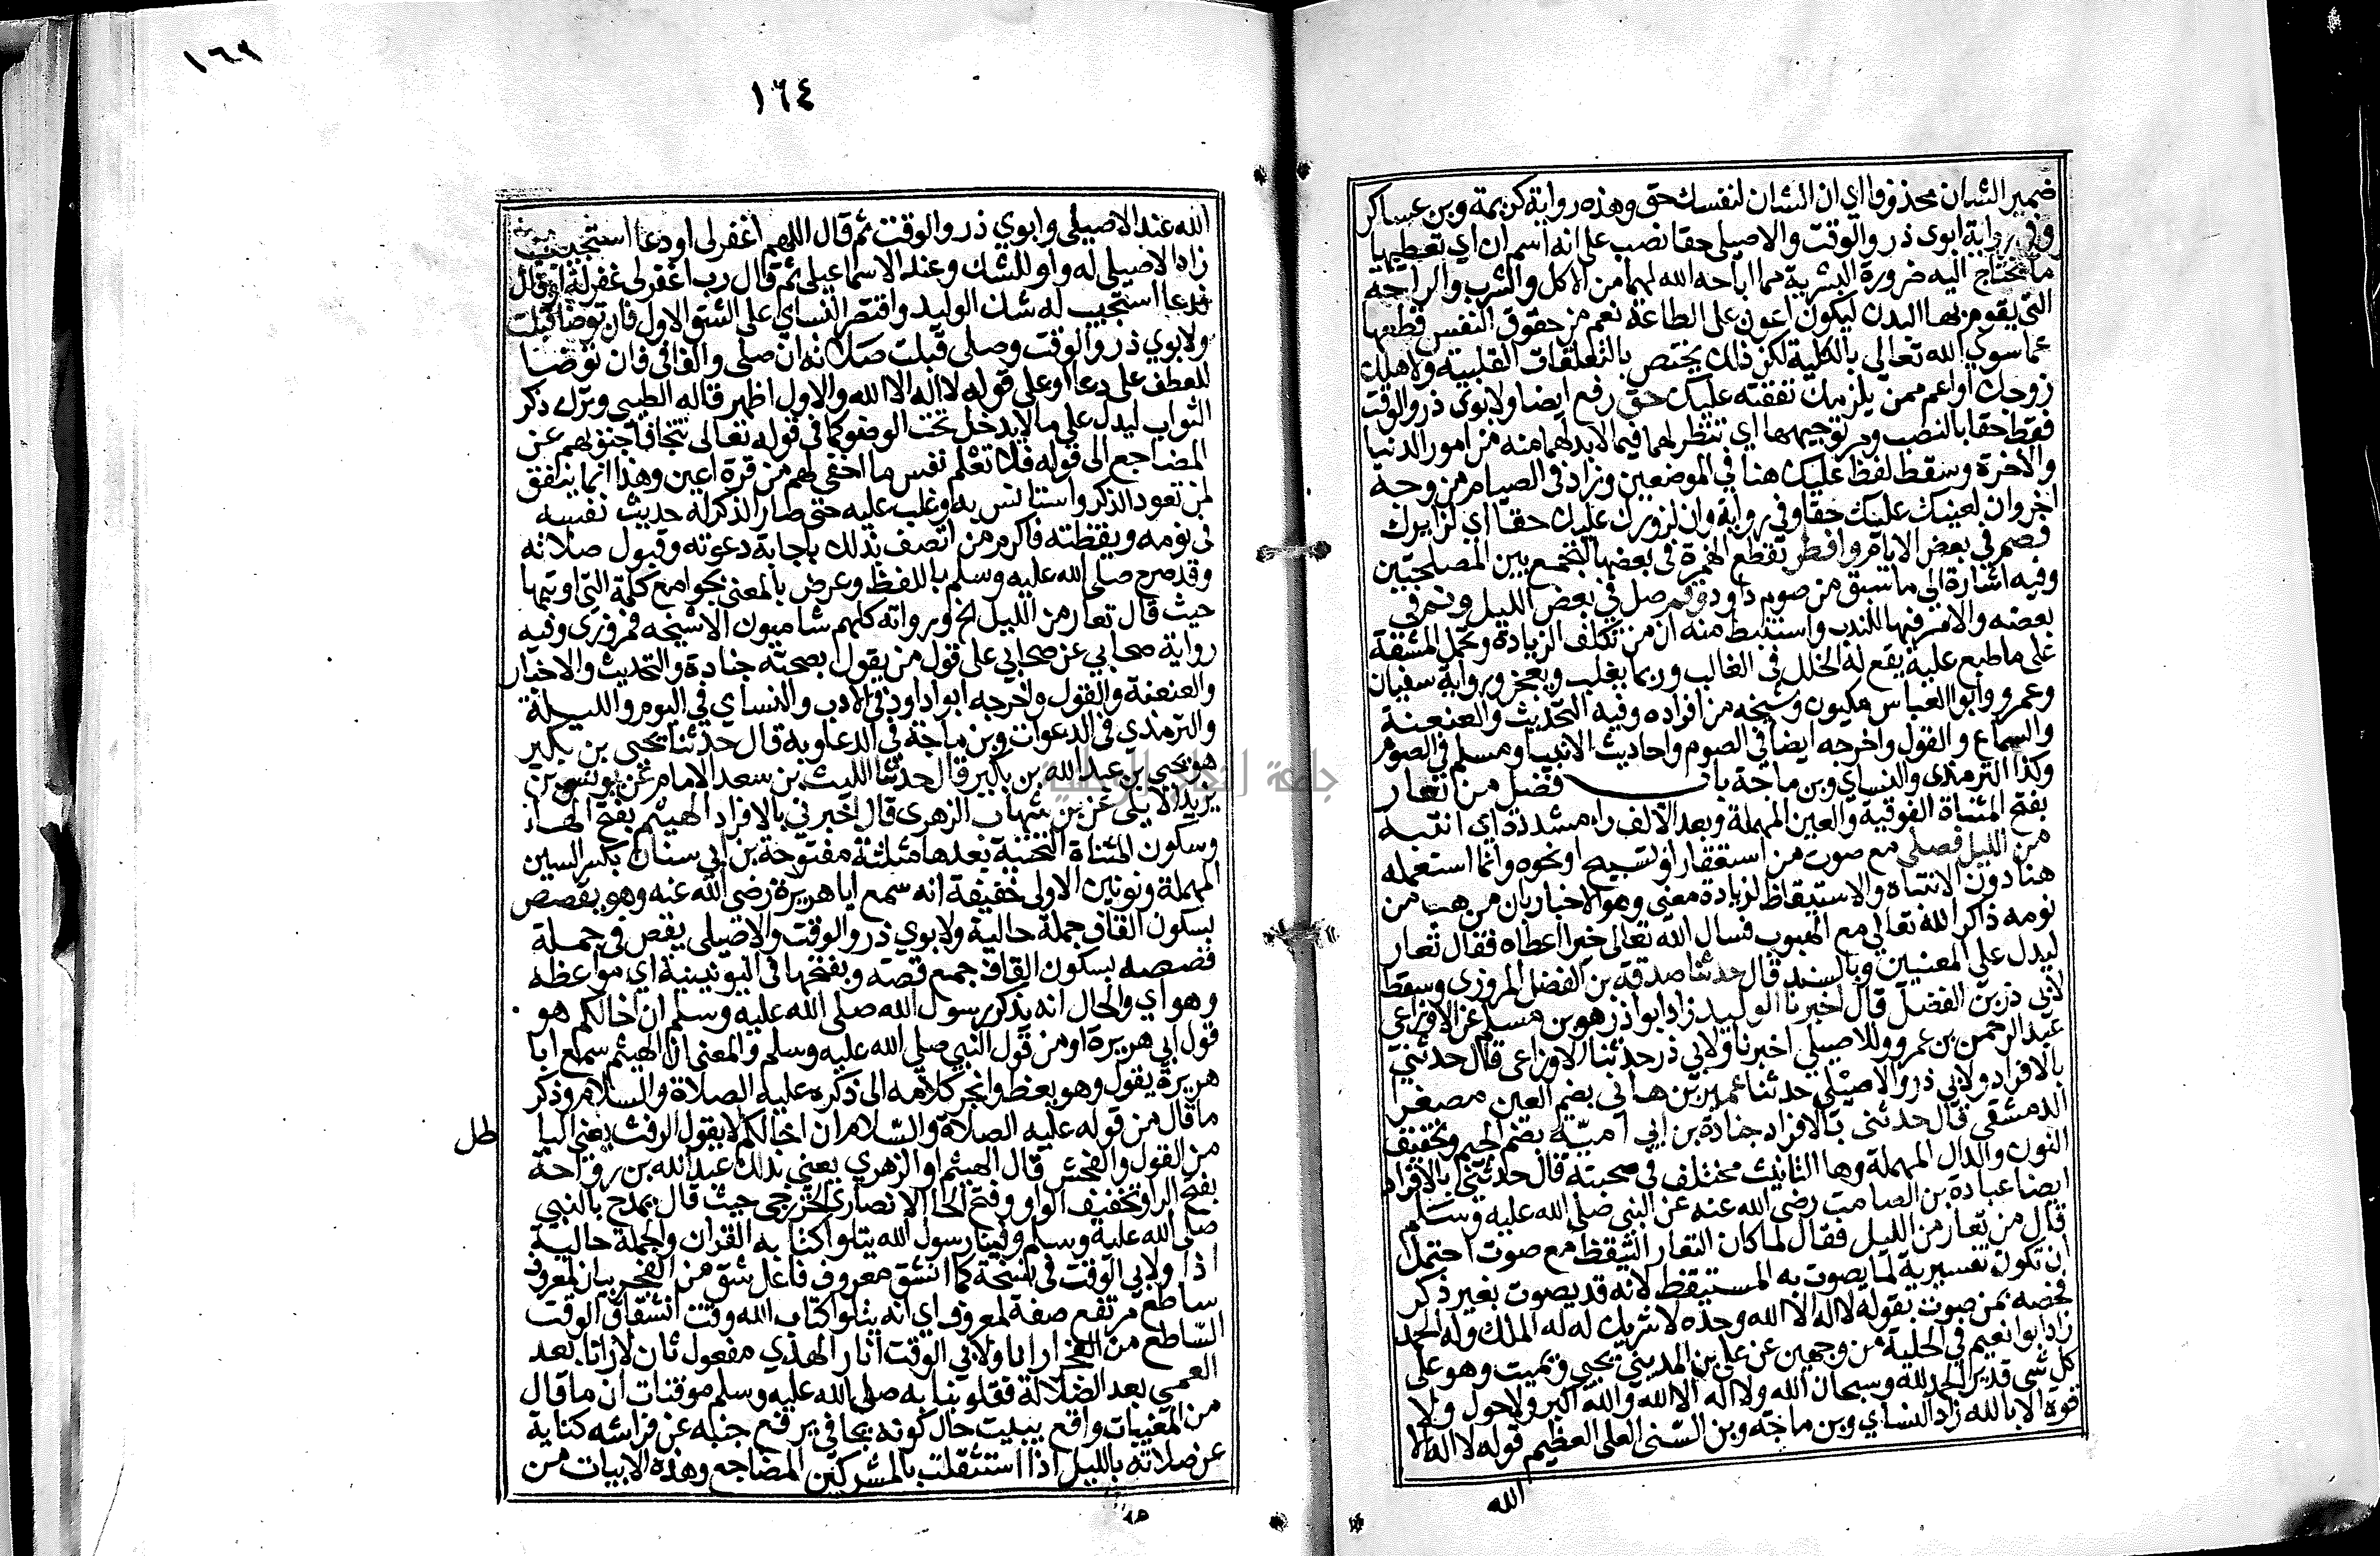 ضمير الشان محذوفا اي ان الشان لنفسك حق وهذه رواية كريمة وبن عساكر
وفي رواية ابوى ذر والوقت والاصيلى حقا نصب على انه اسم ان اي تعطيها
ما تحتاج اليه ضرورة البشرية مما اباحه الله لهما من الاكل والشرب والراحة
التي يقوم بها البدن ليكون اعون على الطاعة نعم من حقوق النفس قطعها
عما سوى الله تعالى بالكلية لكن ذلك يختص بالتعلقات القلبية ولاهلك
زوجك او اعم ممن يلزمك نفقته عليك حق رفع ايضا ولابوى ذر والوقت
فقط حقا بالنصب ومر توجيهها اي تنظر لهما فيما لابد لهما منه من امور الدنيا
والاخرة وسقط لفظ عليك هنا في الموضعين وزاد في الصيام من وجه
اخر وان لعينك عليك حقا وفي رواية وان لزورك عليك حقا اي لزايرك
فصم في بعض الايام وافطر بقطع الهمزة في بعضها لتجمع بين المصلحتين
وفيه اشارة الى ما سبق من صوم داود وقم صل في بعض الليل ونم في
بعضه والامر فيها للندب واستنبط منه ان من تكلف الزيادة وتحمل المشقة
على ما طبع عليه يقع له الخلل في الغالب وربما يغلب ويعجز ورواية سفيان
وعمرو وابو العباس مكيون وشيخه من افراده وفيه التحديث والعنعنة
والسماع والقول واخرجه ايضا في الصوم واحاديث الانبيا ومسلم في الصوم
وكذا الترمذى والنساي وبن ماجة باب فضل من تعار
بفتح المثناة الفوقية والعين المهملة وبعد الالف راء مشددة اي انتبه
من الليل فصلى مع صوت من استغفار او تسبيح او نحوه وانما استعمله
هنا دون الانتباه والاستيقاظ لزيادة معنى وهو الاخبار بان من هب من
نومه ذاكرا لله تعالى مع الهبوب فسال الله تعالى خيرا اعطاه فقال تعار
ليدل على المعنيين وبالسند قال حدثنا صدقة بن الفضل المروزى وسقط
لابى ذر بن الفضل قال اخبرنا الوليد زاد ابوا ذر هو بن مسلم عن الاوزاعي
عبد الرحمن بن عمرو وللاصيلى اخبرنا ولابي ذر حدثنا الاوزاعى قال حدثني
بالافراد ولابي ذر والاصيلى حدثنا عمير بن هانى بضم العين مصغرا
الدمشقى قال حدثنى بالافراد جنادة بن ابي امية بضم الجيم وتخفيف
النون والدال المهملة وها التانيث مختلف في صحبته قال حدثني بالافراد
ايضا عبادة بن الصامت رضى الله عنه عن النبي صلى الله عليه وسلم
قال من تعار من الليل فقال لما كان التعار التيقظ مع صوت احتمل
ان تكون تفسيرية لما يصوت به المستيقظ لانه قد يصوت بغير ذكر
فخصه بمن صوت بقوله لا اله الا الله وحده لا شريك له له الملك وله الحمد
زاد ابوا نعيم في الحلية من وجهين عن على بن المديني يحيى ويميت وهو على
كل شى قدير الحمد لله وسبحان الله ولا اله الا الله والله اكبر ولا حول ولا
قوة الا بالله زاد النساي وبن ماجة وبن السنى العلى العظيم قوله لا اله الا
الله
١٦٤
الله عند الاصيلى وابوي ذر والوقت ثم قال اللهم اغفر لى او دعا استجيب
زاد الاصيلى له واو للشك وعند الاسماعيلى ثم قال رب اغفر لى غفر له او قال
فدعا استجيب له شك الوليد واقتصر النساي على الشق الاول فان توضا قبلت
ولابوي ذر والوقت وصلى قبلت صلاته ان صلى والفا في فان توضا
للعطف على دعا او على قوله لا اله الا الله والاول اظهر قاله الطيبى وترك ذكر
الثواب ليدل على ما لا يدخل تحت الوصف كما في قوله تعالى تتجافا جنوبهم عن
المضاجع الى قوله فلا تعلم نفس ما اخفى لهم من قرة اعين وهذا انما يتفق
لمن تعود الذكر واستانس به وغلب عليه حتى صار الذكر له حديث نفسه
في نومه ويقظته فاكرم من اتصف بذلك باجابة دعوته وقبول صلاته
وقد صرح صلى الله عليه وسلم باللفظ وعرض بالمعنى بجوامع كلمة التى اوتيها
حيث قال تعار من الليل الخ ورواته كلهم شاميون الا شيخه فمروزى وفيه
رواية صحابي عن صحابي على قول من يقول بصحبته جنادة والتحديث والاخبار
والعنعنة والقول واخرجه ابوا داود في الادب والنساي في اليوم والليلة
والترمذى في الدعوات وبن ماجة في الدعا وبه قال حدثنا يحيى بن بكير
هو يحيى بن عبد الله بن بكير قال حدثنا الليث بن سعد الامام عن يونس بن
يزيد الايلى عن بن شهاب الزهرى قال اخبرني بالافراد الهيثم بفتح الهاء
وسكون المثناة التحتية بعدها مثلثة مفتوحة بن ابي سنان بكسر السين
المهملة ونونين الاولى خفيفة انه سمع ابا هريرة رضى الله عنه وهو يقصص
بسكون القاف جملة حالية ولابوي ذر والوقت والاصيلى يقص في جملة
قصصه بسكون القاف جمع قصة وبفتحها في اليونينية اي مواعظه
وهو اي والحال انه يذكر رسول الله صلى الله عليه وسلم ان اخا لكم هو
قول ابي هريرة او من قول النبي صلى الله عليه وسلم والمعنى ان الهيثم سمع ابا
هريرة يقول وهو يعظ وانجر كلامه الى ذكره عليه الصلاة والسلام وذكر
ما قال من قوله عليه الصلاة والسلام ان اخا لكم لا يقول الرفث يعني البا
من القول والفحش قال الهيثم او الزهري يعني بذلك عبد الله بن رواحة
بفتح الرا وتخفيف الواو وفتح الحا الانصاري الخزرجى حيث قال يمدح بالنبي
صلى الله عليه وسلم وفينا رسول الله يتلوا كتابه القران والجملة حالية
اذا ولابي الوقت في نسخة كما انشق معروف فاعل شق من الفجر بيان لمعروف
ساطع مرتفع صفة لمعروف اي انه يتلوا كتاب الله وقت انشقاق الوقت
الساطع من الفجر ارانا ولابي الوقت انار الهدي مفعول ثان لارانا بعد
العمى بعد الضلالة فقلوبنا به صلى الله عليه وسلم موقنات ان ما قال
من المغيبات واقع يبيت حال كونه يجافي يرفع جنبه عن فراشه كناية
عن صلاته بالليل اذا استثقلت بالمشركين المضاجع وهذه الابيات من